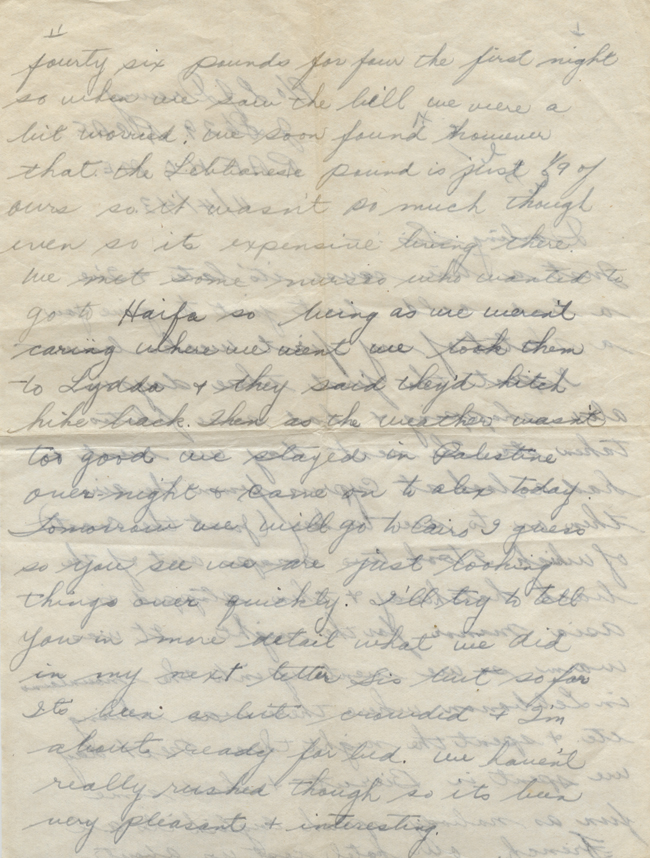 11
fourty six pounds for four the first night
so when we saw the bill we were a
bit worried. We soon found however
that the Lebbanese pound is just 1/9 of
ours so it wasn't so much though
even so its expensive living there.
We met some nurses who wanted to
go to Haifa so being as we weren't
caring where we went we took them
to Lydda + they said they'd hitch
hike back. Then as the weather wasn't
too good we stayed in Palestine
over night + came on to alex today.
Tomorrow we will go to Cairo I guess
so you see we are just looking
things over quickly. I'll try to tell
you in more detail what we did
in my next letter Sis but so far
Its been a bit crowded + I'm
about ready for bed. We haven't
really rushed though so its been
very pleasant + interesting.